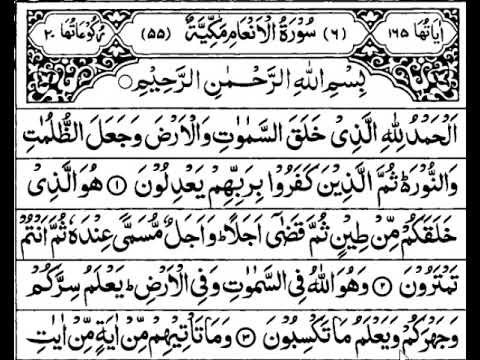 اٰیَاتُهَا ۱۶۵ (۶) سُوْرَةُ الْاَنْعَامِ مَكِّیَّةٌ (۵۵) رُكُوْعَاتُهَا ۲۰
بِسْمِ اللّٰهِ الرَّحْمٰنِ الرَّحِیْمِ
اَلْحَمْدُ لِلّٰهِ الَّذِیْ خَلَقَ السَّمٰوٰتِ وَالْاَرْضَ وَجَعَلَ الظُّلُمٰتِ
وَالنُّوْرَ ؕ ثُمَّ الَّذِیْنَ كَفَرُوْا بِرَبِّهِمْ یَعْدِلُوْنَ ۱ هُوَ الَّذِیْ
خَلَقَكُمْ مِّنْ طِیْنٍ ثُمَّ قَضٰۤی اَجَلًا ؕ وَاَجَلٌ مُّسَمًّی عِنْدَهٗ ثُمَّ اَنْتُمْ
تَمْتَرُوْنَ ۲ وَهُوَ اللّٰهُ فِی السَّمٰوٰتِ وَفِی الْاَرْضِ ؕ یَعْلَمُ سِرَّكُمْ
وَجَهْرَكُمْ وَیَعْلَمُ مَا تَكْسِبُوْنَ ۳ وَمَا تَاْتِیْهِمْ مِّنْ اٰیَةٍ مِّنْ اٰیٰتِ